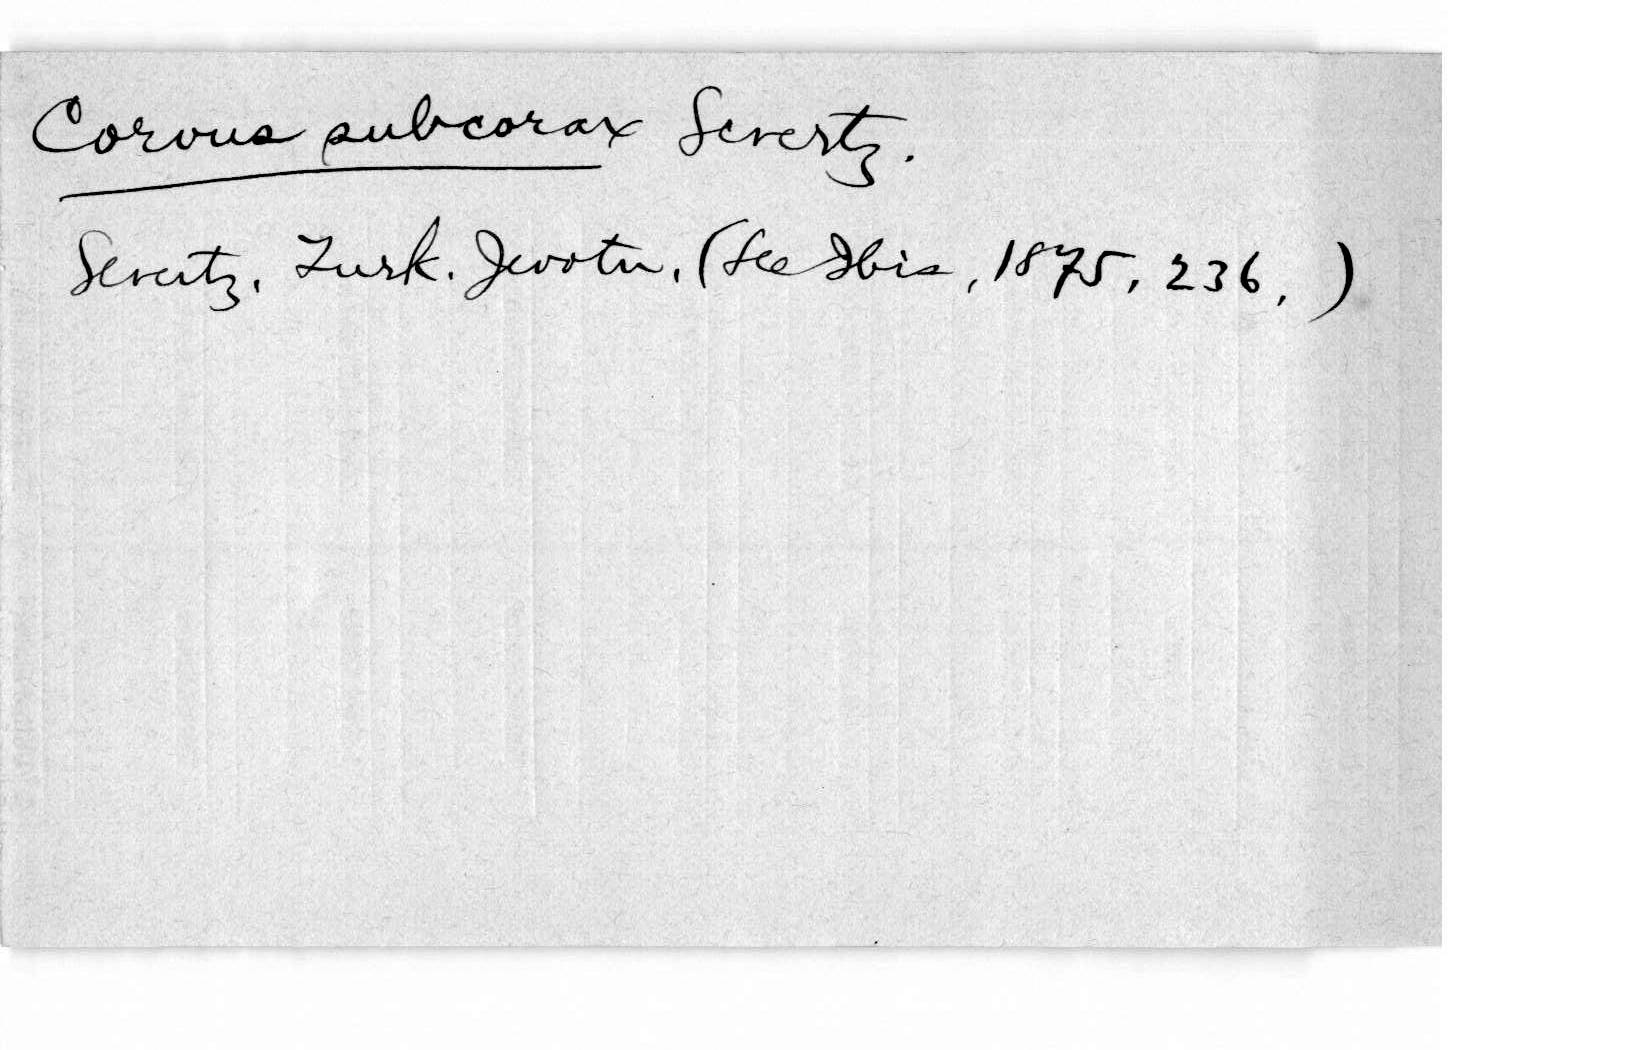 Corvus subcorax Severtz.
Severtz, Turk. Jevotn. (See Ibis, 1875, 236, )